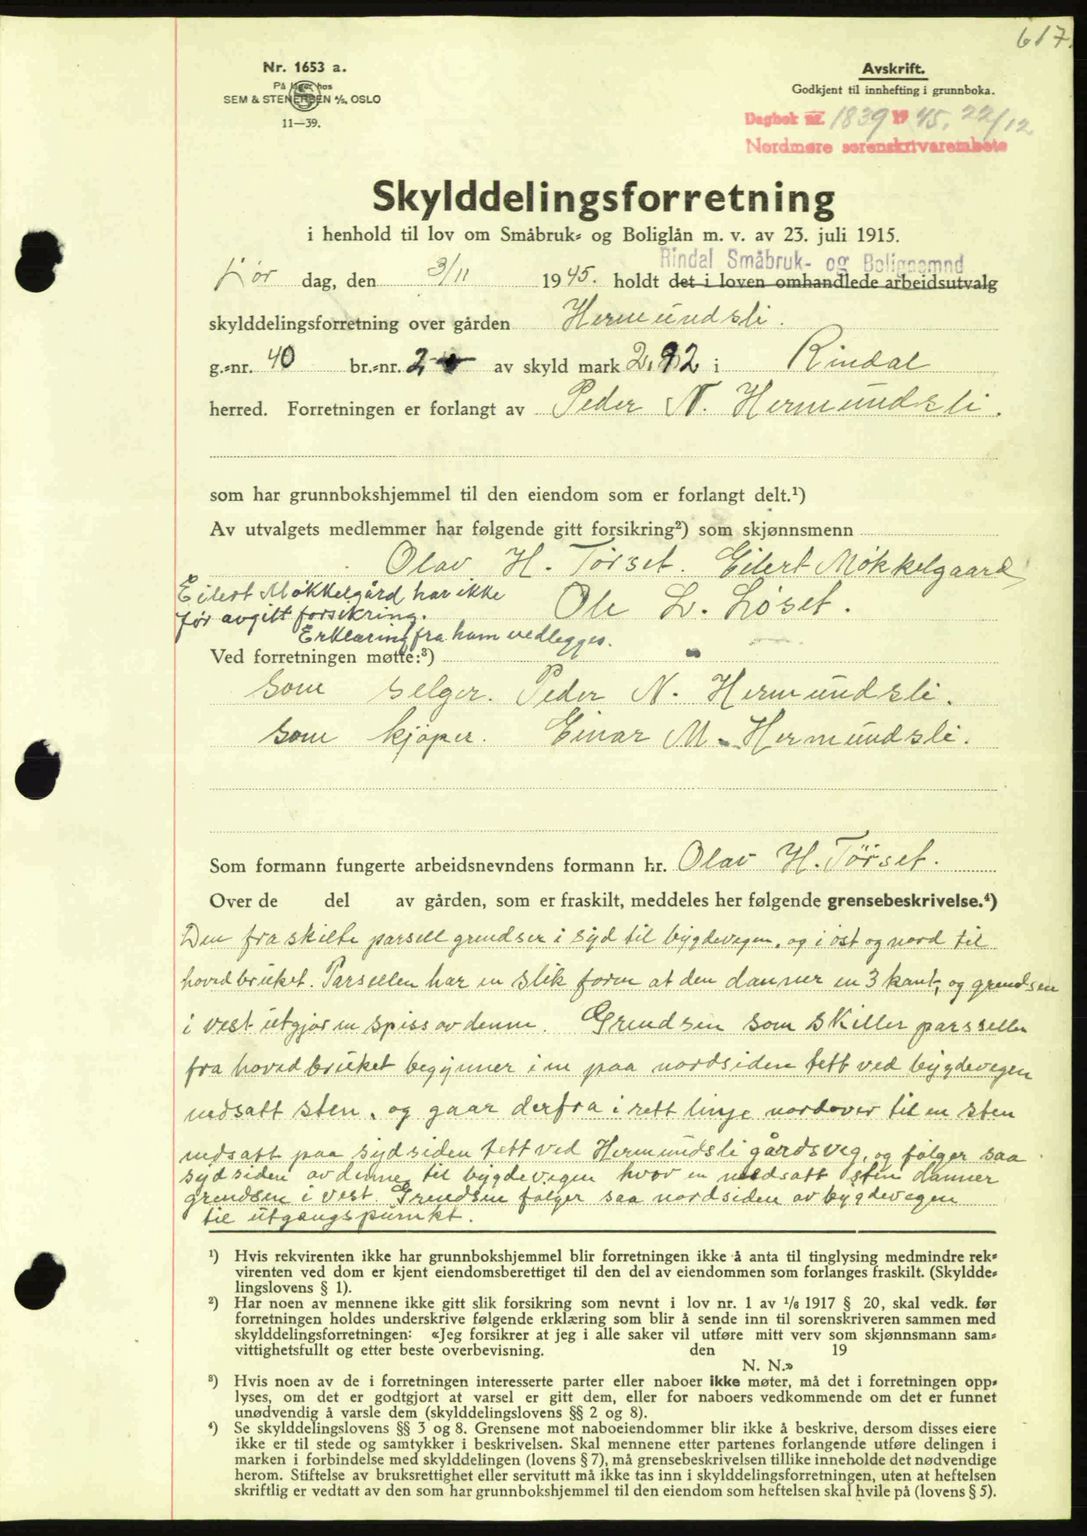 617.
Nr. 1653 a.
På lager hos
SEM & STENERSEN A/S, OSLO
11—39.
Avskrift.
Godkjent til innhefting i grunnboka.
Dagbok nr. 1839 19 45. 22/12
Nordmøre sorenskrivarembete
Skylddelingsforretning
i henhold til lov om Småbruk- og Boliglån m. v. av 23. juli 1915.
Rindal Småbruk- og Bolignemnd
Lør dag, den 3/11 1945. holdt det i loven omhandlede arbeidsutvalg
skylddelingsforretning over gården Hermundsli.
g.-nr. 40 br.-nr. 2 av skyld mark 2,92 i Rindal
herred. Forretningen er forlangt av Peder N. Hermundsli.
som har grunnbokshjemmel til den eiendom som er forlangt delt.¹)
Av utvalgets medlemmer har følgende gitt forsikring²) som skjønnsmenn
Olav H. Tørset. Eilert Møkkelgaard,
Eilert Møkkelgård har ikke
Ole L. Løset.
før avgitt forsikring.
Erklæring fra ham vedlegges.
Ved forretningen møtte:³)
Som selger. Peder N. Hermundsli.
Som kjøper. Einar M. Hermundsli.
Som formann fungerte arbeidsnevndens formann hr. Olav H. Tørset.
Over de del av gården, som er fraskilt, meddeles her følgende grensebeskrivelse.⁴)
Den fraskilte parsell grendser i syd til bygdevegen, og i øst og nord til
hovedbruket. Parsellen har en slik form at den danner en 3 kant, og grendsen
i vest utgjør en spiss av denne. Grendsen som skiller parsellen
fra hovedbruket begynner i en paa nordsiden tett ved bygdevegen
nedsatt sten, og gaar derfra i rett linje nordover til en sten
nedsatt paa sydsiden tett ved Hermundsli gårdsveg, og følger saa
sydsiden av denne til bygdevegen hvor en nedsatt sten danner
grendsen i vest. Grendsen følger saa nordsiden av bygdevegen
til utgangspunkt.
¹) Hvis rekvirenten ikke har grunnbokshjemmel blir forretningen ikke å anta til tinglysing medmindre rek-
virenten ved dom er kjent eiendomsberettiget til den del av eiendommen som forlanges fraskilt. (Skyldde-
lingslovens § 1).
²) Har noen av mennene ikke gitt slik forsikring som nevnt i lov nr. 1 av 1/6 1917 § 20, skal vedk. før
forretningen holdes underskrive følgende erklæring som blir å sende inn til sorenskriveren sammen med
skylddelingsforretningen: «Jeg forsikrer at jeg i alle saker vil utføre mitt verv som skjønnsmann sam-
vittighetsfullt og etter beste overbevisning. den 19
N. N.»
³) Hvis noen av de i forretningen interesserte parter eller naboer ikke møter, må det i forretningen opp-
lyses, om det er godtgjort at varsel er gitt dem, eller for naboers vedkommende om det er funnet
unødvendig å varsle dem (skylddelingslovens §§ 2 og 8).
⁴) Se skylddelingslovens §§ 3 og 8. Grensene mot naboeiendommer blir ikke å beskrive, dersom disses eiere
ikke er til stede og samtykker i beskrivelsen. Skal mennene etter partenes forlangende utføre delingen i
marken i forbindelse med skylddelingen (lovens § 7), må grensebeskrivelsen tillike inneholde det nødvendige
herom. Stiftelse av bruksrettighet eller servitutt må ikke tas inn i skylddelingsforretningen, uten at heftelsen
skriftlig er vedtatt av den som har grunnbokshjemmel til den eiendom som heftelsen skal hvile på (lovens § 5).